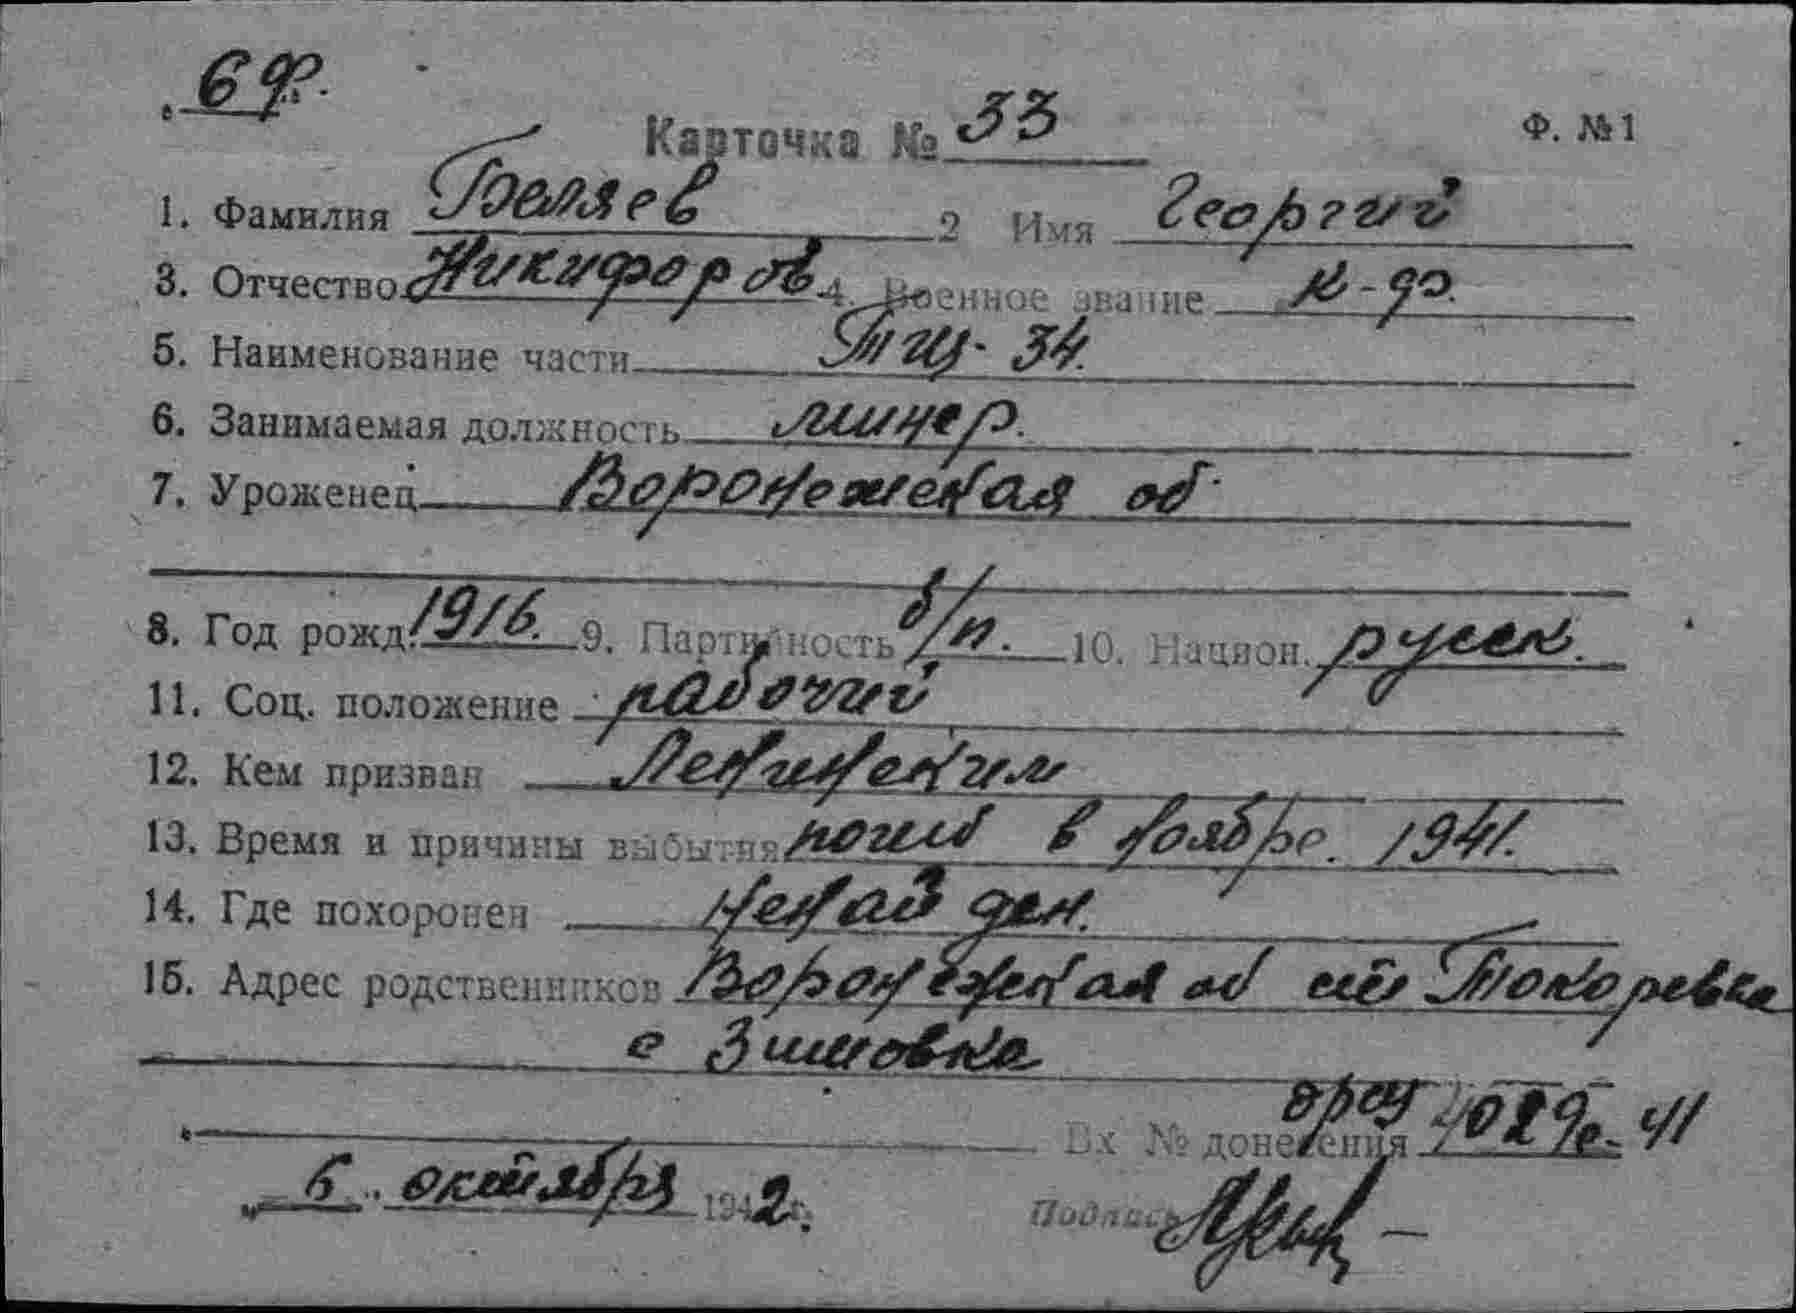 6 ф.
Карточка № 33 Ф. №1
1. Фамилия Беляев 2 Имя Георгий
3. Отчество Никифоров 4. Военное звание к-ф.
5. Наименование части ТЩ-34.
6. Занимаемая должность минер.
7. Уроженец Воронежская об.
8. Год рожд. 1916. 9. Партийность б/п. 10. Национ. русск.
11. Соц. положение рабочий
12. Кем призван Ленинским
13. Время и причины выбытия погиб в ноябре. 1941.
14. Где похоронен
15. Адрес родственников Воронежская об ст Токоревка
с Зимовка
Вх № донесения 41
„ 6 „ октября 1942 г. Подпись